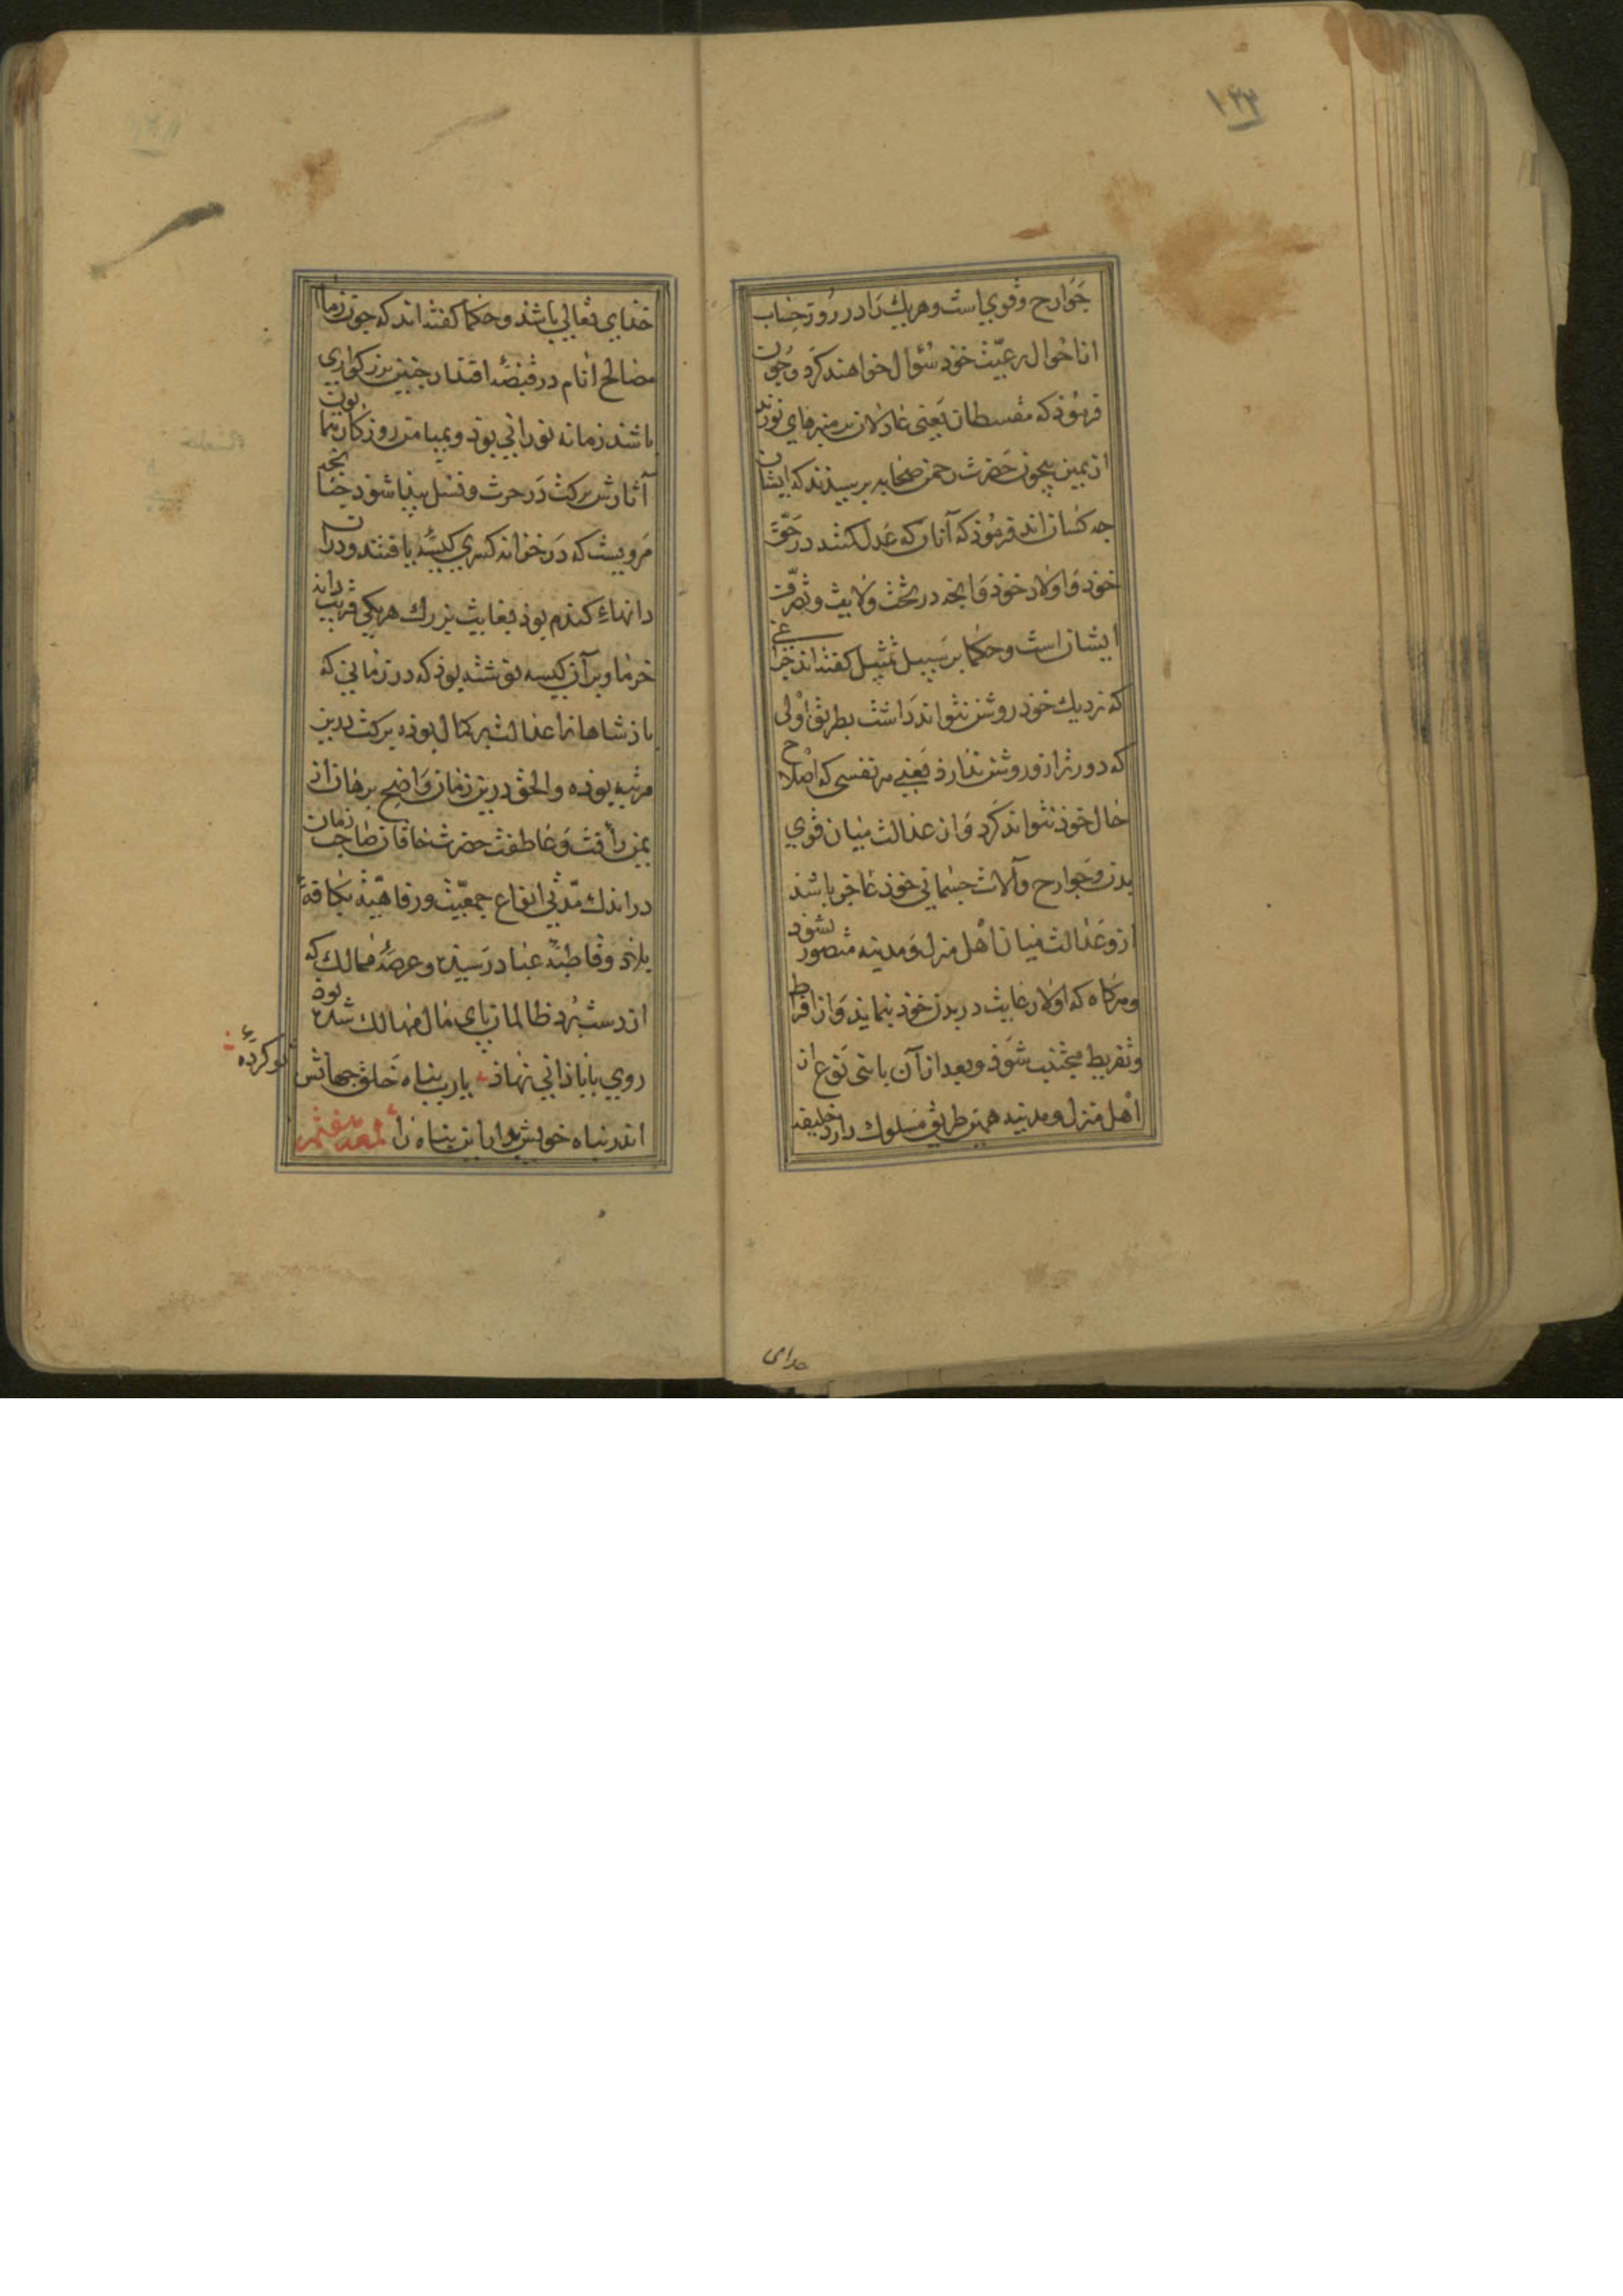 ۱۴۳
جوارح وقوی است وهریك را در روز حساب
از احوال رعیّت خوذ سُؤال خواهند کرد وچون
فرموذ که مقسطان یعنی عادلان بر منبرهای نورند
از یمین بیچون حضرت رحمن صحابه برسیذند که ایشان
جه کسان اند فرموذ که آنان که عدل کنند در حقّ
خوذ و اولاد خوذ و انجه در تحت ولایت وتصرّف
ایشان است وحکما بر سبیل تمثیل کفته اند جراغی
که نزدیك خوذ روشن نتواند داشت بطریق اولی
که دورتر ازو روشن ندارذ یعنی هر نفسی که اصلاح
حال خوذ نتواند کرد و از عدالت میان قوی
بدن وجوارح وآلات جسمانی خوذ عاجز باشذ
ازو عدالت میان اهل منزل و مدینه متصور نشود
وهرکاه که اولا رعایت در بدن خوذ بنماید و از افراط
وتفریط مجتنب شوذ وبعد از آن با بنی نوع از
اهل منزل ومدینه همین طریق مسلوك دارد خلیفه
خدای
خذای تعالی باشذ وحکما کفته اند که جون زمام
مصالح انام در قبضهٔ اقتدار جنین بزرکواری
باشذ زمانه نورانی بوذ وبمیامن روزکار همایون
آثارش برکت در حرث ونسل بیذا شوذ جنانجه
مرویست که در خزانه کسری کیسهٔ یافتند ودران
دانهاء کندم بوذ بغایت بزرك هر یکی قریب دانه
خرما وبر آن کیسه نوشته بوذ که در زمانی که
باذشاهان را عدالت بر کمال بوذه برکت بدین
مرتبه بوذه والحق درین زمان واضح برهان از
یمن رأفت و عاطفت حضرت خاقان صاحب زمان
در اندك مدّتی انواع جمعیّت ورفاهیّت بکافهٔ
بلاد وقاطبهٔ عباد رسیذه وعرصهٔ ممالك که
از دست بُرد ظالمان پای مال مهالك شده بوذ
روی باباذانی نهاذ یا رب پناه خلق جهانش
تو کردهٔ
اندر پناه خویش بدار این پناه را لمعه هفتم